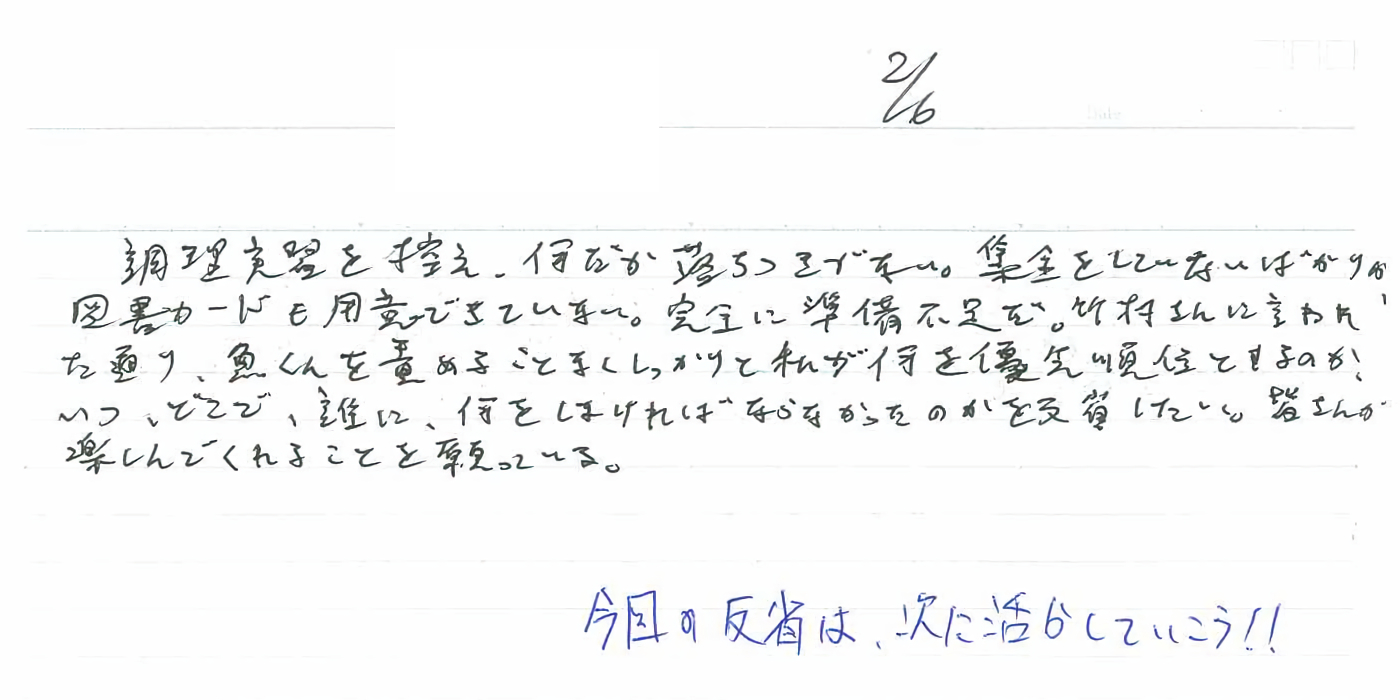 2/6
Date
調理実習を控え、何だか落ちつきがない。集金をしていないばかりか
図書カードも用意できていない。完全に準備不足だ。竹村さんに言われ
た通り、魚くんを責めることなくしっかりと私が何を優先順位とするのか、
いつ、どこで、誰に、何をしなければならなかったのかを反省したい。皆さんが
楽しんでくれることを願っている。
今回の反省は、次に活かしていこう!!